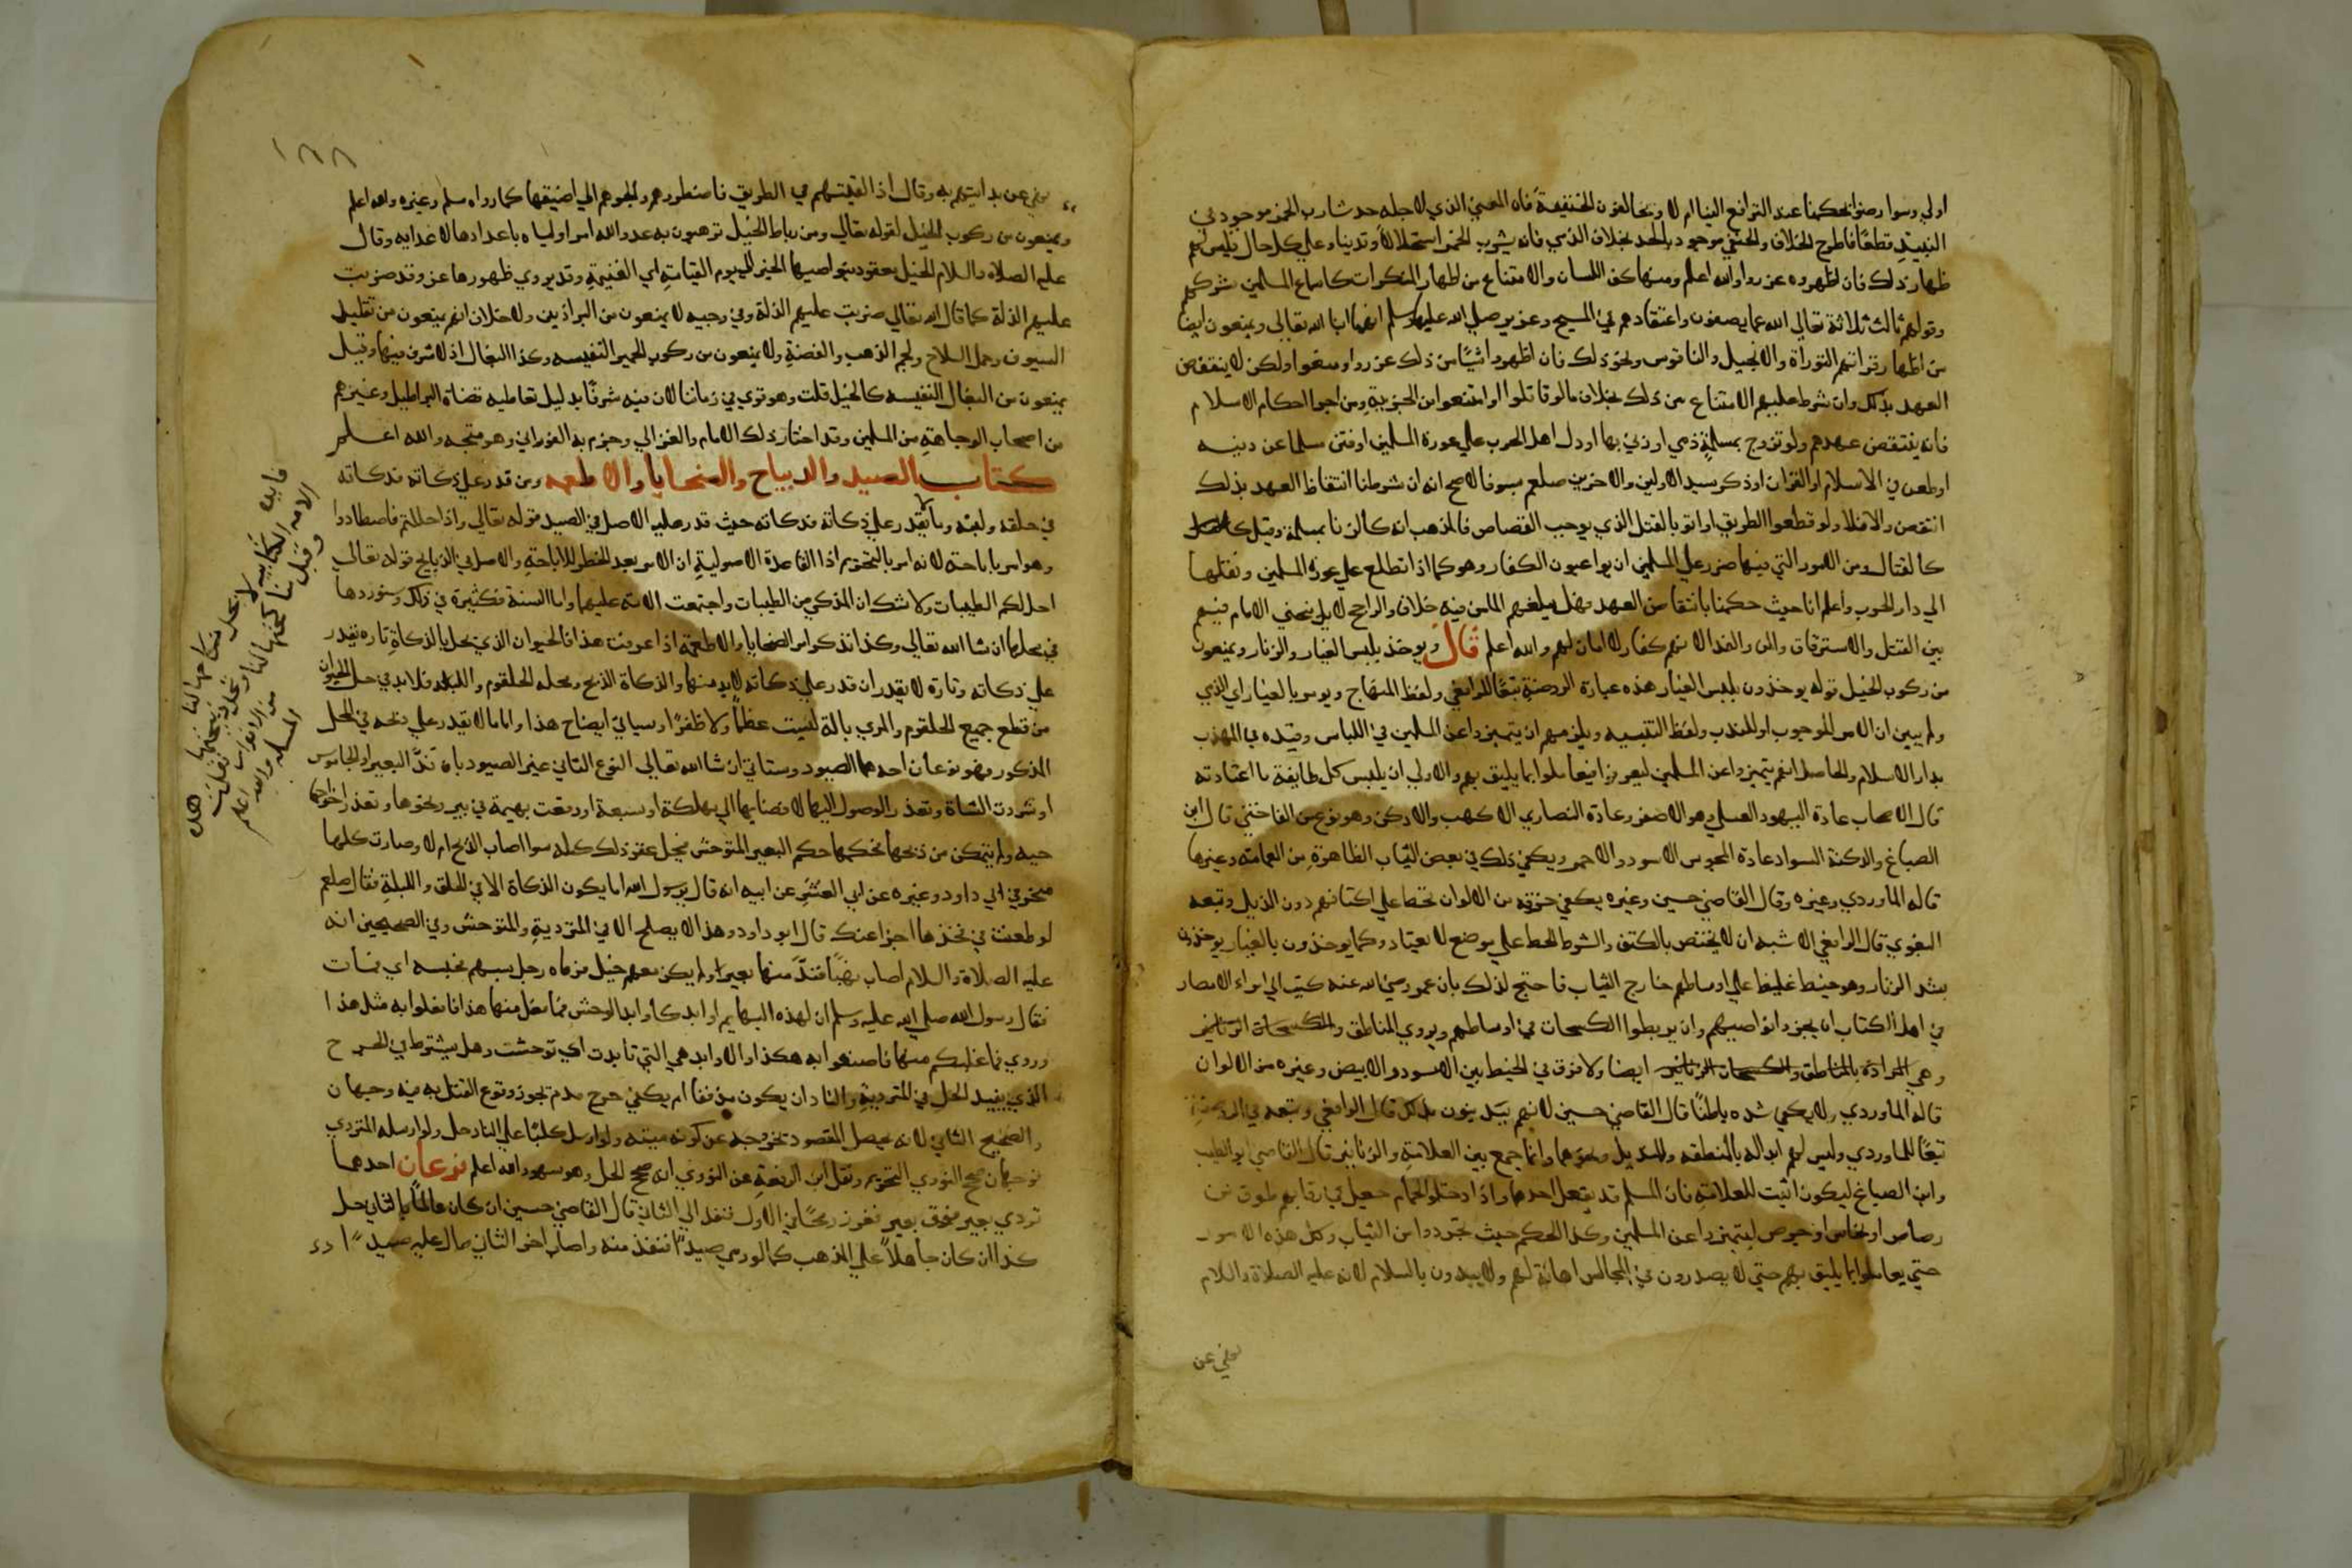 اولي وسوا رضوا بحكمنا عند الترافع الينا ام لا ويخالفون الحنيفة فان المعني الذي لاجله حد شارب الخمر موجود في
النبيذ قطعا فاطرح الخلاف والحنفي موجود بالحد بخلاف الذمي فانه يشرب الخمر استحلالا وتدينا وعلي كل حال فليس لهم
ظهار ذلك فان اظهروه عزروا والله اعلم ومنها كف اللسان والامتناع من اظهار المنكرات كاسماع المسلمين شركهم
وقولهم ثالث ثلاثة تعالي الله عما يصفون واعتقادهم في المسيح وعزير صلي الله عليهما وسلم انهما ابنا لله تعالي ويمنعون ايضا
من اظهار قراتهم التوراة والانجيل والناقوس ونحو ذلك فان اظهروا شيئا من ذلك عزروا ومنعوا ولكن لا ينتقض
العهد بذلك وان شرط عليهم الامتناع من ذلك بخلاف ما لو قاتلوا او امتنعوا من الجزية ومن اجرا احكام الاسلام
فانه ينتقض عهدهم ولو تزوج بمسلمة ذمي او زني بها او دل اهل الحرب علي عورة المسلمين او فتن مسلما عن دينه
او طعن في الاسلام او القران او ذكر سيد الاولين والاخرين صلعم بسو فالاصح انه ان شرطنا انتقاظ العهد بذلك
انتقض والا فلا ولو قطعوا الطريق او اتوا بالقتل الذي يوجب القصاص فالمذهب انه كالزنا بمسلمة وقيل
كالقتال ومن الصور التي فيها ضرر علي المسلمين ان يواعيون الكفار وهو كما اذا تطلع علي عورة المسلمين ونقلها
الي دار الحرب واعلم انا حيث حكمنا بانتقاض العهد فهل يبلغهم المامن فيه خلاف والراجح لا بل يتخير الامام فيهم
بين القتل والاسترقاق والمن والفدا لانهم كفار لا امان لهم والله اعلم قال ويوخذ بلبس الغيار والزنار ويمنعون
من ركوب الخيل قوله يوخذون بلبس الغيار هذه عبارة الروضة تبعا للرافعي ولفظ المنهاج ويومر بالغيار اي الذمي
ولم يبين ان الامر للوجوب او للندب ولفظ التنبيه ويلزمهم ان يتميزوا عن المسلمين في اللباس وقيده في المهذب
بدار الاسلام والحاصل انهم يتميزوا عن المسلمين ليعرفوا فيعاملوا بما يليق بهم والاولي ان يلبس كل طايفة ما اعتادته
قال الاصحاب عادة اليهود العسلي وهو الاصفر وعادة النصاري الاكهب والادكن وهو نوع من الفاختي قال ابن
الصباغ والدكنة السواد وعادة المجوس الاسود والاحمر ويكفي ذلك في بعض الثياب الظاهرة من العمامة وغيرها
قاله الماوردي وغيره وقال القاضي حسين وغيره يكفي خرقة من الالوان تخط علي اكتافهم دون الذيل وتبعه
البغوي قال الرافعي الاشبه ان لا يختص بالكتف والشرط الخط علي موضع لا يعتاد وكما يوخذون بالغيار يوخذون
بشد الزنار وهو خيط غليظ علي اوساطهم خارج الثياب فاحتج لذلك بان عمر رضي الله عنه كتب الي امراء الامصار
في اهل الكتاب ان يجزوا نواصيهم وان يربطوا الكسحات في اوساطهم ويروي المناطق والكسحات الزنانير
وهي المرادة بالمناطق والكسحات الزنانير ايضا ولا فرق في الخيط بين الاسود والابيض وغيره من الالوان
قاله الماوردي ولا يكفي شده باطنا قال القاضي حسين لانهم يتدينون بذلك قال الرافعي وتبعه في الروضة
تبعا للماوردي وليس لهم ابداله بالمنطقة والمنديل ونحوهما وانما جمع بين العلامة والزنانير قال القاضي ابو الطيب
وابن الصباغ ليكون اثبت للعلامة فان المسلم قد يفعل احدهما واذا دخلوا الحمام جعل في رقابهم طوق من
رصاص او نحاس او جرص ليتميزوا عن المسلمين وكذا الحكم حيث تجردوا من الثياب وكل هذه الامور
حتي يعاملوا بما يليق بهم حتي لا يصدرون في المجالس اهانة لهم ولا يبدون بالسلام لانه عليه الصلاة والسلام
نهي عن
١٨٨
نهي عن بدايتهم به وقال اذا لقيتهم في الطريق فاضطروهم والجوهم الي اضيقها كما رواه مسلم وغيره والله اعلم
ويمنعون من ركوب الخيل لقوله تعالي ومن رباط الخيل ترهبون به عدو الله امر اولياه باعدادها لاعدايه وقال
عليه الصلاة والسلام الخيل معقود بنواصيها الخير الي يوم القيامة اي الغنيمة وقد يروي ظهورها عز وقد ضربت
عليهم الذلة كما قال الله تعالي ضربت عليهم الذلة وفي وجيه لا يمنعون من البراذين ولا خلاف انهم يمنعون من تقليد
السيوف وحمل السلاح ولجم الذهب والفضة ولا يمنعون من ركوب الحمير النفيسه وكذا البغال اذ لا شرف فيها وقيل
يمنعون من البغال النفيسه كالخيل قلت وهو قوي في زماننا لان فيه شرفا بدليل تعاطيه قضاة البراطيل وغيرهم
من اصحاب الوجاهة من المسلمين وقد اختار ذلك الامام والغزالي وجزم به الفوراني وهو متجه والله اعلم
كتاب الصيد والدبياح والضحايا والاطعمه ومن قدر علي ذكاته فذكاته
في حلقه ولبته وما لم يقدر علي ذكاته فذكاته حيث قدر عليه الاصل في الصيد قوله تعالي واذا حللتم فاصطادوا
وهو امر باباحته لانه امر بالتحريم اذا القاعدة الاصولية ان الامر بعد الحظر للاباحة والاصل في الذبايح قوله تعالي
احل لكم الطيبات ولا شك ان المذكي من الطيبات واجتمعت الامة عليهما واما السنة فكثيرة في ذلك وستوردها
في محلها ان شا الله تعالي وكذا نذكر امر الضحايا والاطعمة اذا عرفت هذا فالحيوان الذي يحل بالذكاة تارة نقدر
علي ذكاته وتارة لا يقدر ان قدر علي ذكاته لابد منها والذكاة الذبح ومحله الحلقوم واللبة فلابد في حل الحيوان
من قطع جميع الحلقوم والمري بالة ليست عظما ولا ظفرا وسياتي ايضاح هذا واما ما لا يقدر علي ذبحه في المحل
المذكور فهو نوعان احدهما الصيود وستاتي ان شا الله تعالي النوع الثاني غير الصيود بان ند البعير او الجاموس
او شردت الشاة وتعذر الوصول اليها لافضايها الي مهلكة او سبعة او وقعت بهيمة في بير ونحوها وتعذر اخراجها
حيه ولم يتمكن من ذبحها فحكمها حكم البعير المتوحش فيحل عقر ذلك كله سوا اصاب المذبح ام لا وصارت كلها
منحر في ابي داود وغيره عن ابي العشر عن ابيه انه قال يرسول الله اما يكون الذكاة الا في الحلق واللبة فقال صلعم
لو طعنت في فخذها اجزا عنك قال ابو داود وهذا لا يصلح الا في المتردية والمتوحش وفي الصحيحين انه
عليه الصلاة والسلام اصاب نهبا فند منها بعير ولم يكن معهم خيل فرماه رجل بسهم فحبسه اي فمات
فقال رسول الله صلي الله عليه وسلم ان لهذه البهايم اوابد كاوابد الوحش فما فعل منها هذا فافعلوا به مثل هذا
وروي فما غلبكم منها فاصنعوا به هكذا والاوابد هي التي تابدت اي توحشت وهل يشترط في الجرح
الذي يفيد الحل في المتردية والناد ان يكون مذففا ام يكفي جرح مدم تجوز وقوع القتل به فيه وجهان
والصحيح الثاني لانه يحصل المقصود بخروجه عن كونه ميتة ولو ارسل كلبا علي الناد حل ولو ارسله المتردي
فوجهان صحح النووي التحريم ونقل ابن الرفعة عن النووي انه صحح الحل وهو سهو والله اعلم فرعان احدهما
تردي بعير فوق بعير فغرز رمحا في الاول فنفذ الي الثاني قال القاضي حسين ان كان عالما بالثاني حل
كذا ان كان جاهلا علي المذهب كما لو رمي صيدا فنفذ منه واصاب اخر الثاني صال عليه صيد
فايدة
الامة الكتابية لا يحل نكاحها لنا